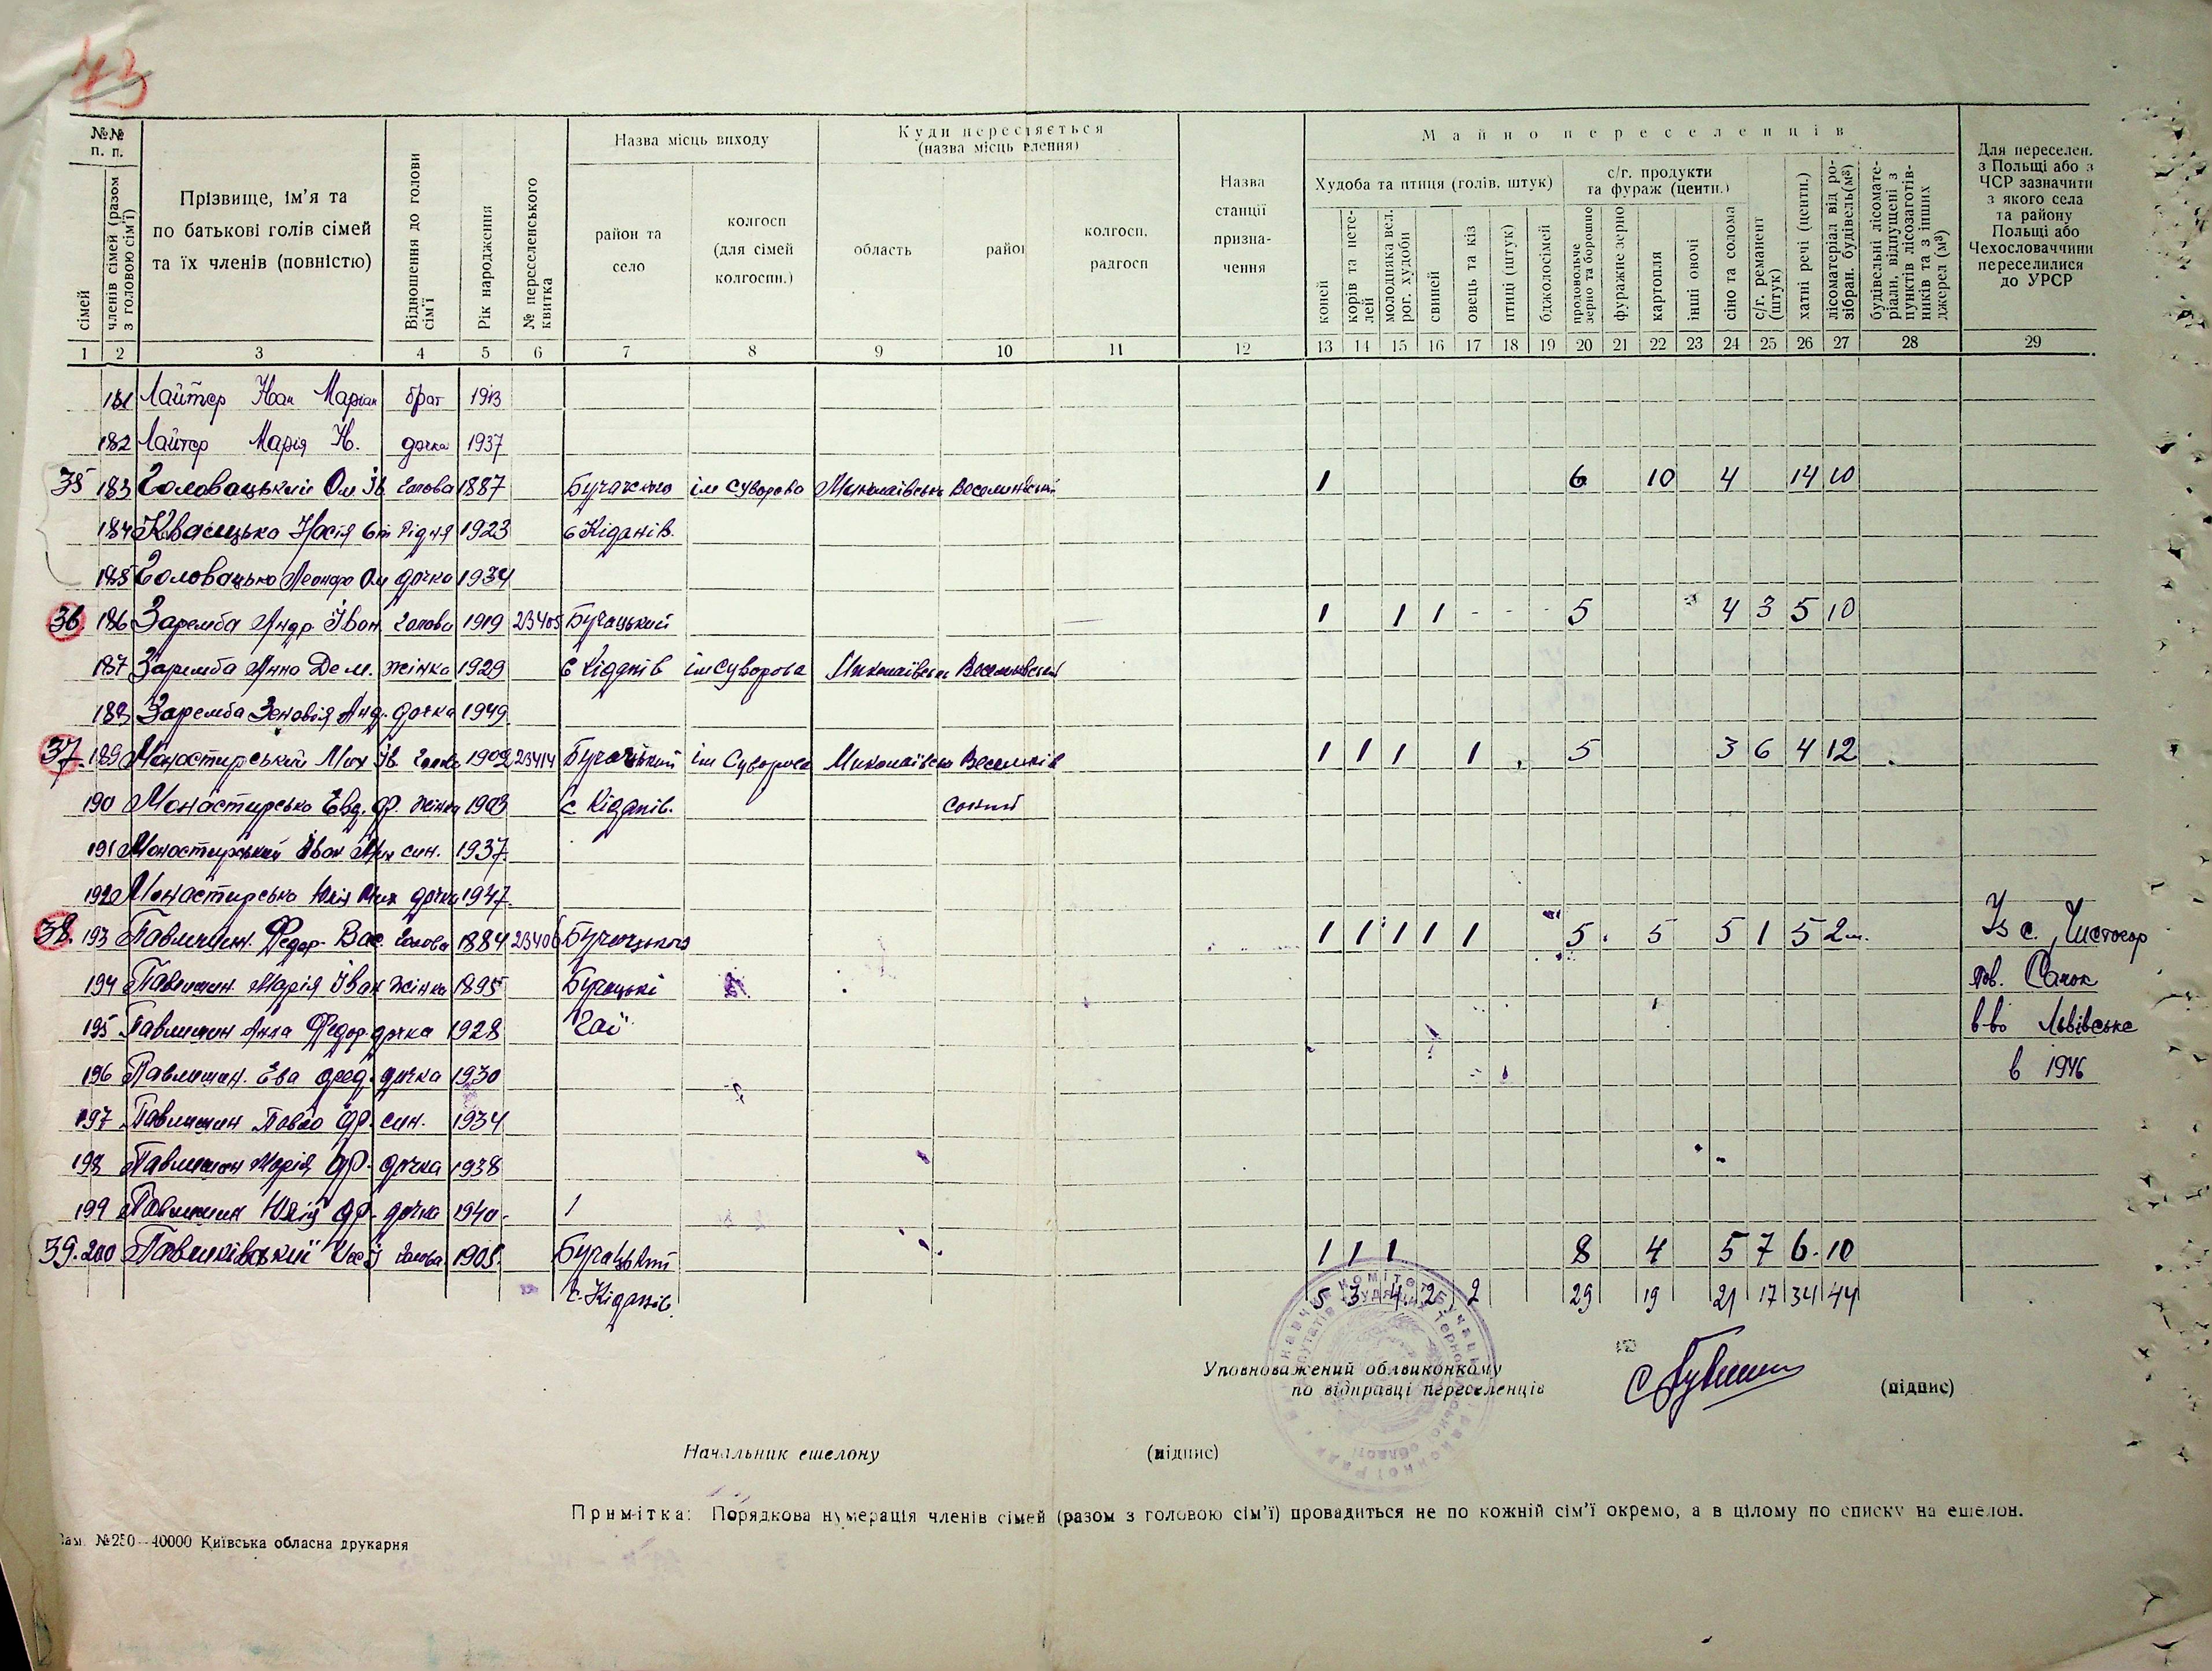 73
№№ п. п.
сімей
членів сімей (разом з головою сім'ї)
Прізвище, ім'я та по батькові голів сімей та їх членів (повністю)
Відношення до голови сім'ї
Рік народження
№ переселенського квитка
Назва місць виходу
район та село
колгосп (для сімей колгоспн.)
Куди переселяється
область
район
колгосп, радгосп
Назва станції призначення
Майно переселенців
Худоба та птиця (голів, штук)
коней
корів та нетелей
молодняка вел. рог. худоби
свиней
овець та кіз
птиці (штук)
бджолосімей
с/г. продукти та фураж (центн.)
продовольче зерно та борошно
фуражне зерно
картопля
інші овочі
сіно та солома
с/г. реманент (штук)
хатні речі (центн.)
лісоматеріал від розібран. будівель (м³)
будівельні лісоматеріали, відпущені з пунктів лісозаготівників та з інших джерел (м³)
Для переселен. з Польщі або з ЧСР зазначити з якого села та району Польщі або Чехословаччини переселилися до УРСР
1 2 3 4 5 6 7 8 9 10 11 12 13 14 15 16 17 18 19 20 21 22 23 24 25 26 27 28 29
181 Лайтер Іван Маріан брат 1913
182 Лайтер Марія І. дочка 1937
35 183 Головацький Ом Ів голова 1887 Бучачского ім Суворова Миколаївська Веселинівський 1 6 10 4 14 10
184 Квасицька Надія рідня 1923 с Кіданів.
185 Головацька Леонора Ом дочка 1934
36. 186 Заремба Андр Іван. голова 1919 23405 Бучацький 1 1 1 - - - 5 4 3 5 10
187 Заремба Анна Дем. жінка 1929 с Кіданів ім Суворова Миколаївська Веселинівський
188 Заремба Зеновія Анд. дочка 1949
37. 189 Монастирський Мих Ів голова 1909 23414 Бучацький ім Суворова Миколаївська Веселинів 1 1 1 1 5 3 6 4 12
190 Монастирська Евд. Ф. жінка 1903 с Кіданів. ський
191 Монастирський Іван Мих син. 1937
192 Монастирська Юлія Мих дочка 1947
38. 193 Павлишин. Федор Вас. голова 1884 23406 Бучацького 1 1 1 1 1 5. 5 5 1 5 2 Із с. Чистогор
194 Павлишин. Марія Іван жінка 1895 Бучацькі пов. Санок
195 Павлишин Анна Федор. дочка 1928 "Гаї" в-во Львівське
196 Павлишин. Ева Фед. дочка 1930 в 1946
197 Павлишин Павло Ф. син. 1934
198 Павлишин Марія Ф. дочка 1938
199 Павлишин Юлія Ф. дочка 1940
39. 200 голова 1905 Бучацький 1 1 1 8 4 5 7 6 10
с. Кіданів. 5 3 4 2 2 29 19 21 17 34 44
Уповноважений облвиконкому
по відправці переселенців (підпис)
Начальник ешелону (підпис)
Примітка: Порядкова нумерація членів сімей (разом з головою сім'ї) провадиться не по кожній сім'ї окремо, а в цілому по списку на ешелон.
Зам. №250—40000 Київська обласна друкарня